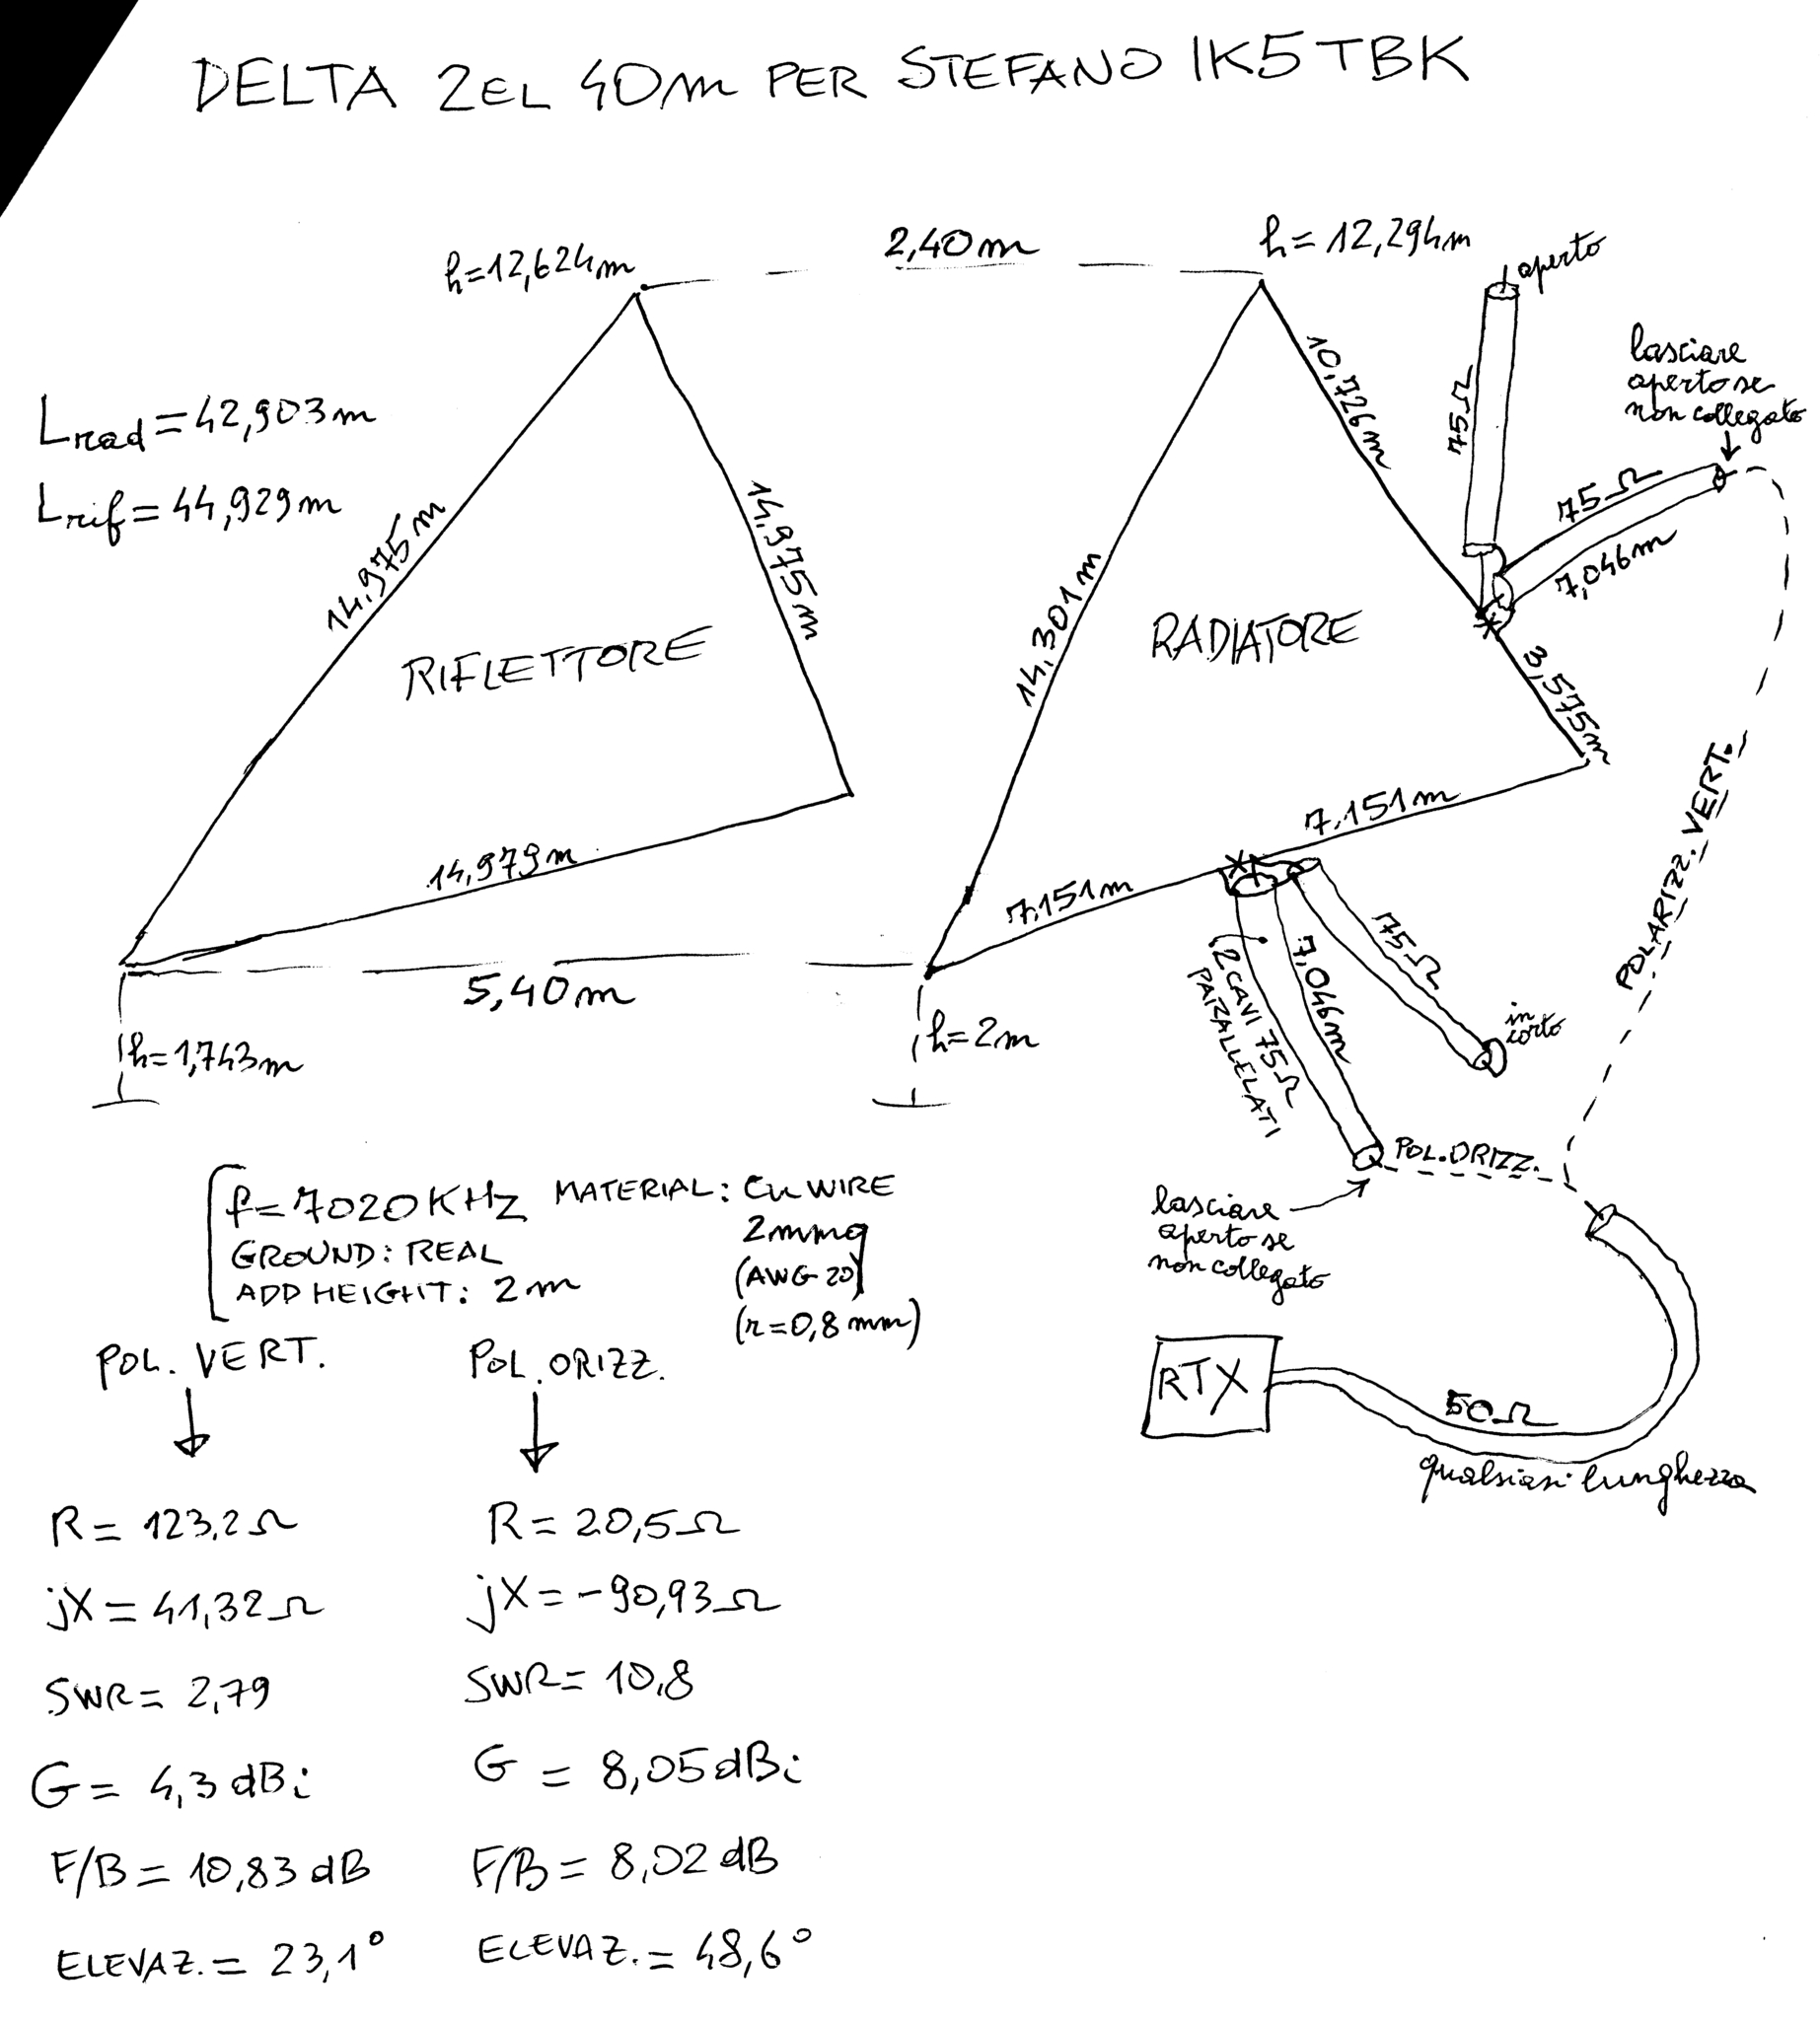 DELTA 2EL 40m PER STEFANO IK5TBK
h=12,624m
2,40m
h=12,294m
aperto
lasciare
aperto se
non collegato
Lrad=42,903m
Lrif=44,929m
14,975m
14,975m
14,979m
RIFLETTORE
14,301m
10,726m
RADIATORE
75Ω
75Ω
7,046m
3,575m
7,151m
7,151m
5,40m
h=1,743m
h=2m
2 CAVI 75Ω
PARALLELATI
7,046m
75Ω
in
corto
POLARIZZ. VERT.
POL. ORIZZ.
lasciare
aperto se
non collegato
f=7020KHZ MATERIAL: Cu WIRE
2mmq
GROUND: REAL
(AWG 20)
ADD HEIGHT: 2m
(r=0,8mm)
RTX
50Ω
qualsiasi lunghezza
POL. VERT.
POL. ORIZZ.
R= 123,2Ω
R= 20,5Ω
jX= 41,32Ω
jX= -90,93Ω
SWR= 2,79
SWR= 10,8
G= 4,3dBi
G= 8,05dBi
F/B= 10,83dB
F/B= 8,02dB
ELEVAZ.= 23,1°
ELEVAZ.= 48,6°